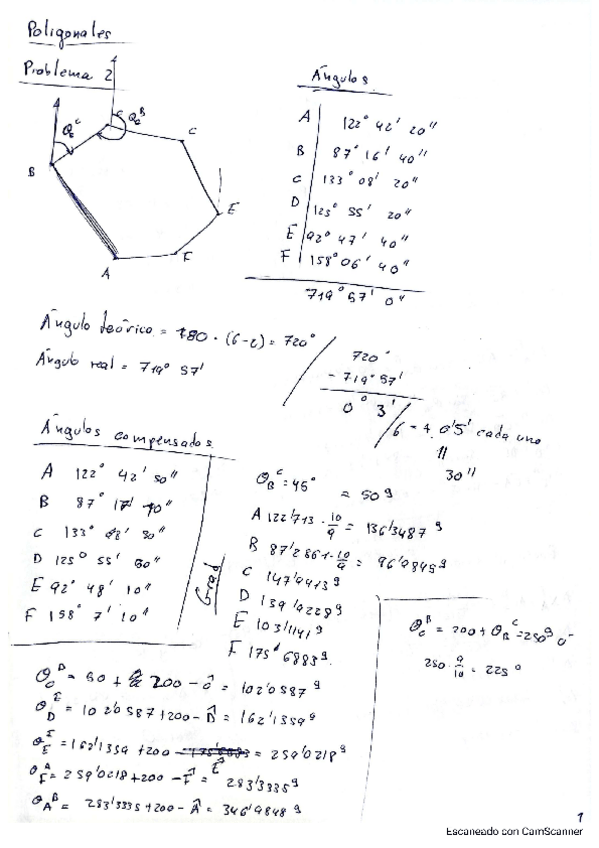 Poligonales
Problema 2
Ángulos
A 122° 42' 20"
B 87° 16' 40"
C 133° 08' 20"
D 125° 55' 20"
E 92° 47' 40"
F 158° 06' 40"
719° 57' 0"
θ_B^C
θ_C^B
B
C
C
E
F
A
Ángulo teórico = 180 · (6-2) = 720°
Ángulo real = 719° 57'
720°
- 719° 57'
0° 3'
/6 = + 0'5' cada uno
"
30"
Ángulos compensados
A 122° 42' 50"
B 87° 17' 10"
C 133° 08' 50"
D 125° 55' 50"
E 92° 48' 10"
F 158° 7' 10"
Grad
θ_B^C = 45° = 50g
A 122'713 · 10/9 = 136'3487g
B 87'2861 · 10/9 = 96'9845g
C 147'9413g
D 139'9228g
E 103'1141g
F 175'6883g
θ_C^B = 200 + θ_B^C = 250g
250 · 9/10 = 225°
θ_C^D = 50 + 200 - Ĉ = 102'0587g
θ_D^E = 102'0587 + 200 - D̂ = 162'1359g
θ_E^F = 162'1359 + 200 - Ê = 259'0218g
θ_F^A = 259'0218 + 200 - F̂ = 283'3335g
θ_A^B = 283'3335 + 200 - Â = 346'9848g
1
Escaneado con CamScanner